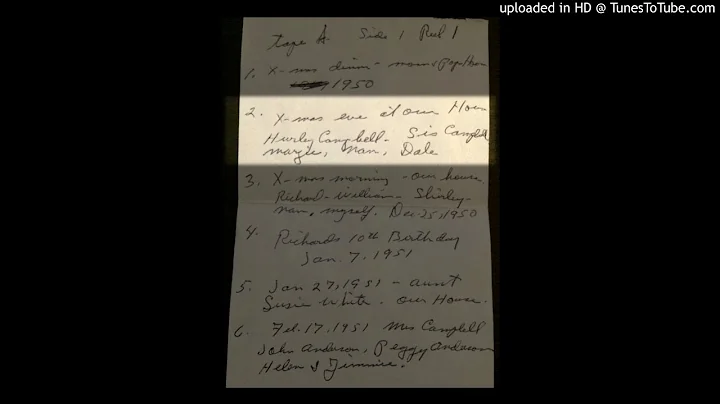 uploaded in HD @ TunesToTube.com
Tape A Side 1 Reel 1
1. X-mas dinner - mom & Pop
1950
2. X-mas eve at our House
Hurley Campbell - Sis Campbell
margie, nan, Dale
3. X-mas morning - our house
Richard - William - Shirley -
nan, myself. Dec 25, 1950
4. Richards 10th Birthday
Jan. 7, 1951
5. Jan 27, 1951 - aunt
Susie White. our House.
6. Feb. 17, 1951 Mrs Campbell
John anderson, Peggy anderson
Helen & Jimmie.